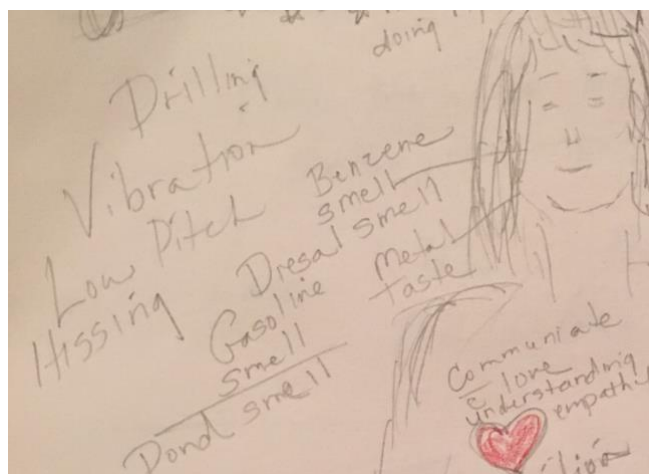 doing
Drilling
Vibration
Low Pitch
Hissing
Benzene
smell
Diesal smell
Gasoline
smell
Pond smell
Metal
taste
Communiate
love
understanding
empathy